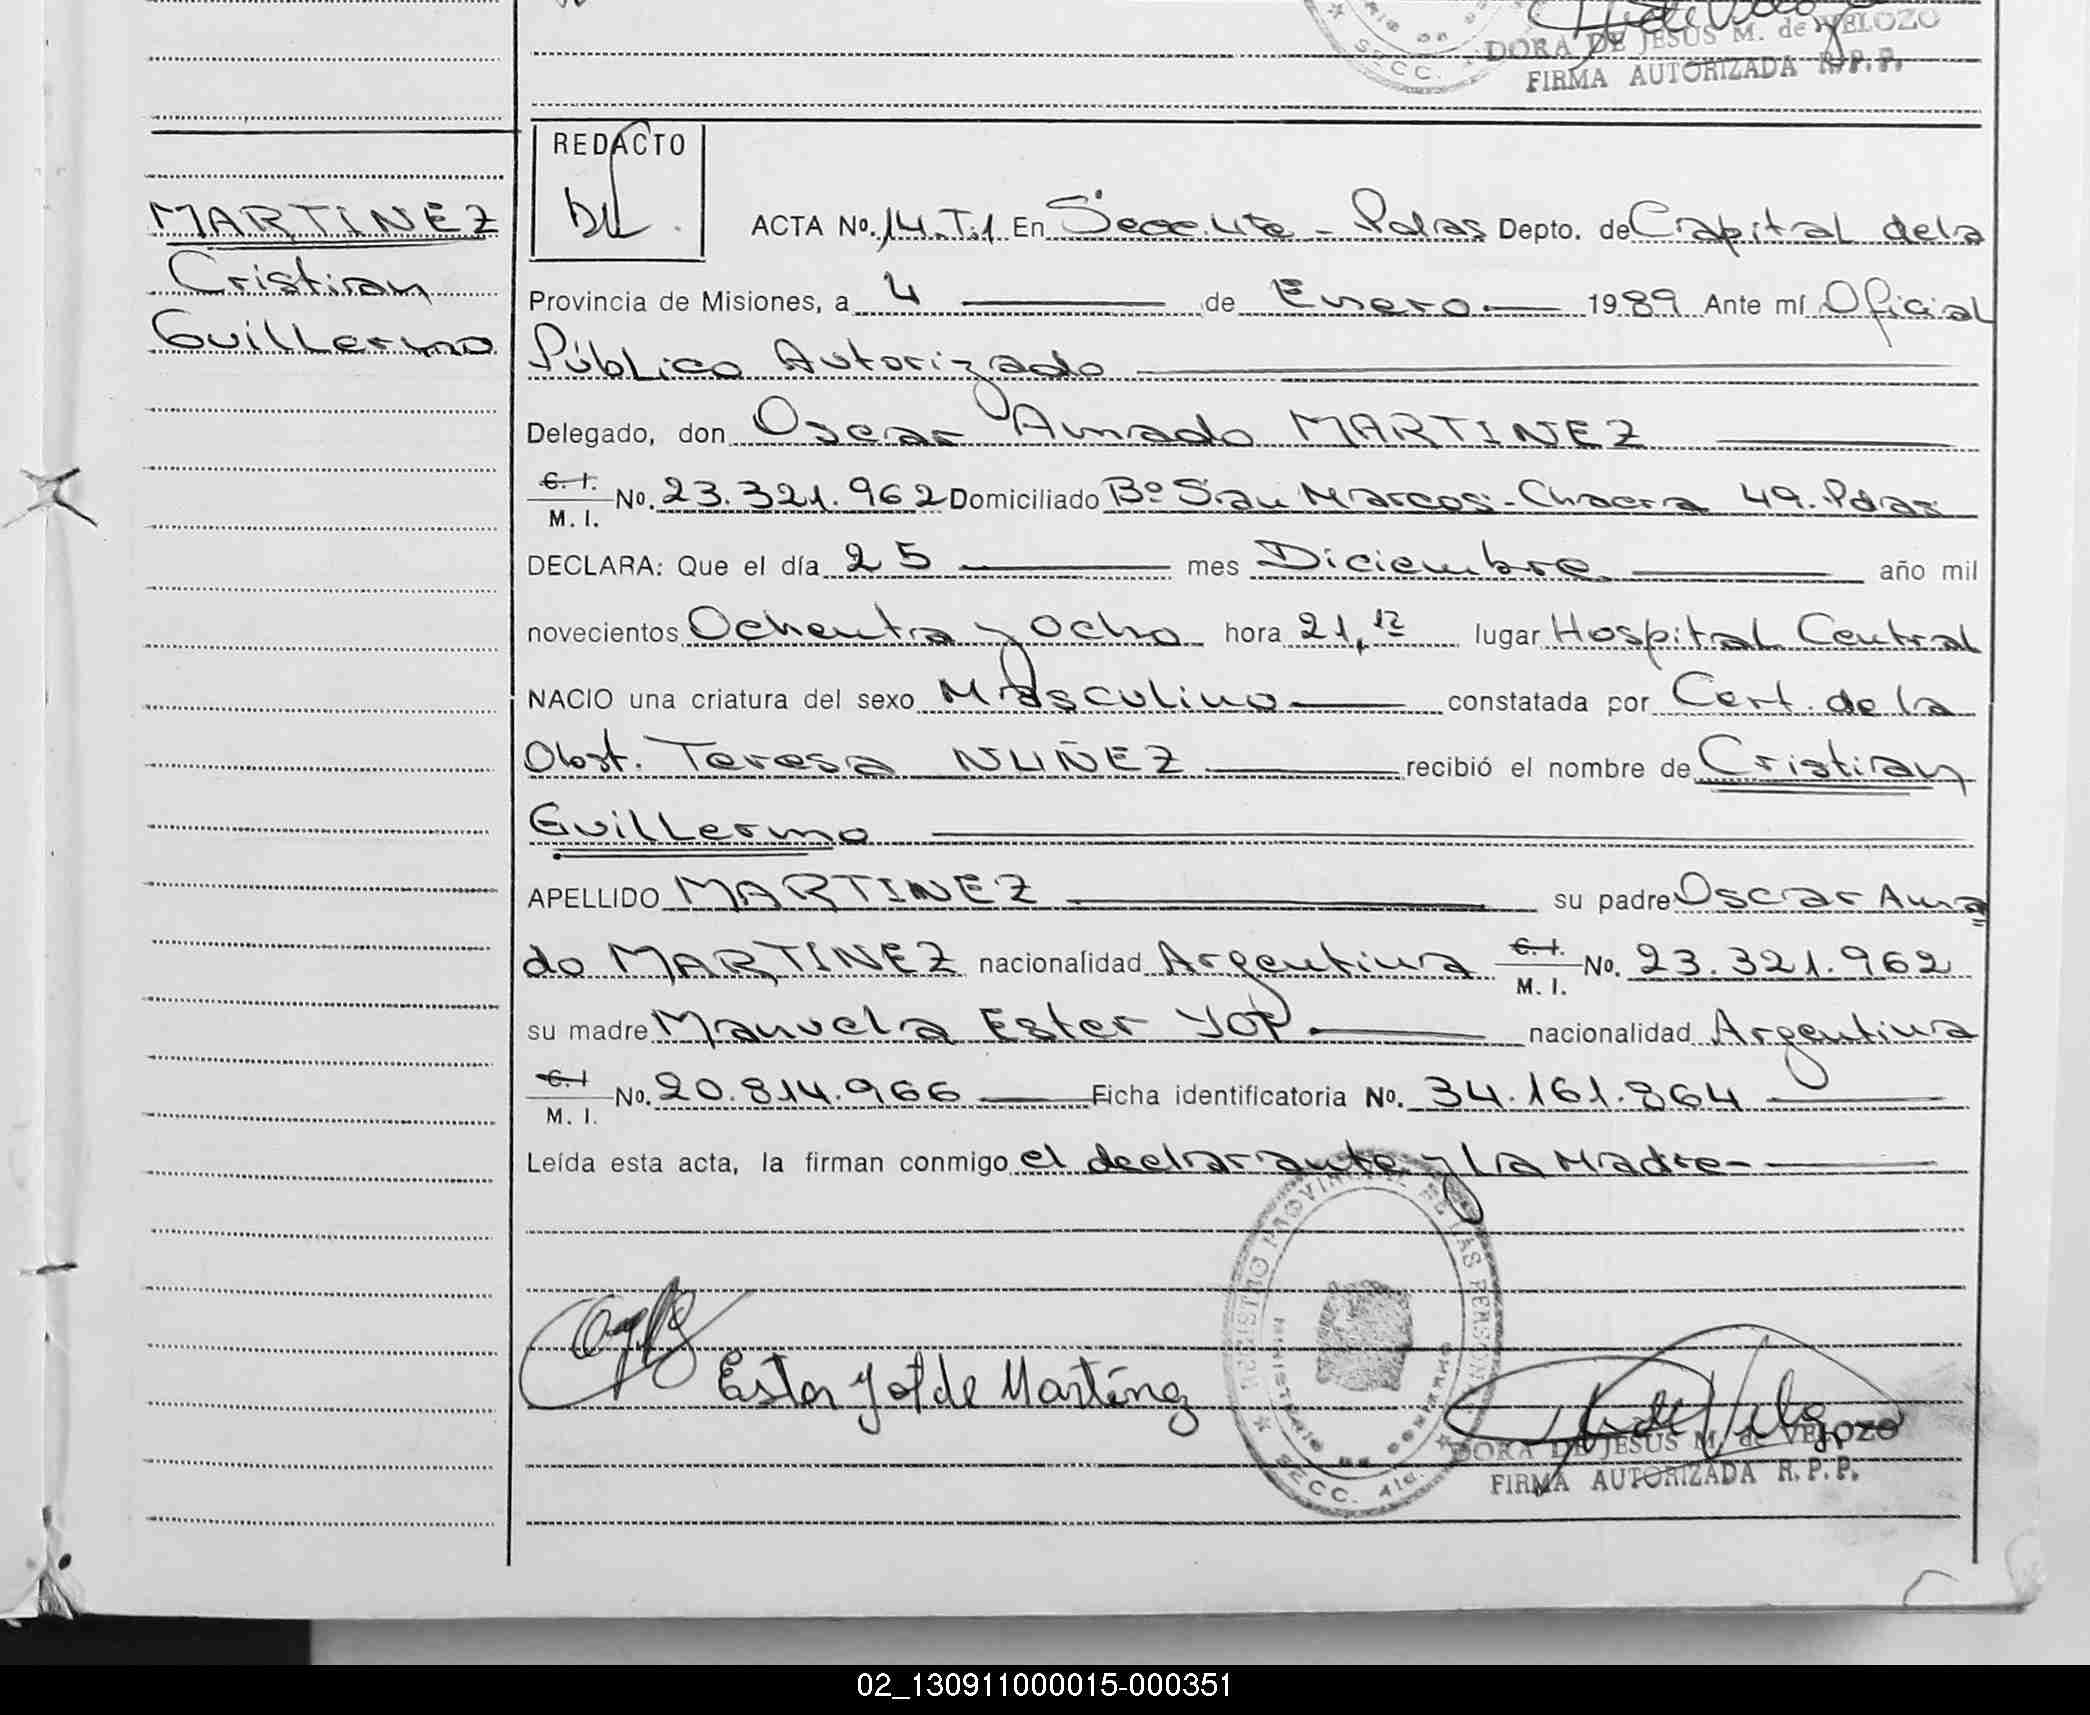 DORA DE JESUS M. de VELOZO
SECC.
FIRMA AUTORIZADA R.P.P.
REDACTO
MARTINEZ
Cristian
Guillermo
ACTA No. 14.T.1 En Secc. 4ta - Pdas Depto. de Capital de la
Provincia de Misiones, a 4 de Enero 1989 Ante mí Oficial
Público Autorizado
Delegado, don Oscar Amado MARTINEZ
C. I.
M. I. No. 23.321.962 Domiciliado Bº San Marcos - Chacra 49. Pdas
DECLARA: Que el día 25 mes Diciembre año mil
novecientos Ochenta y ocho hora 21,12 lugar Hospital Central
NACIO una criatura del sexo Masculino constatada por Cert. de la
Obst. Teresa NUÑEZ recibió el nombre de Cristian
Guillermo
APELLIDO MARTINEZ su padre Oscar Ama
do MARTINEZ nacionalidad Argentina C. I. M. I. No. 23.321.962
su madre Manuela Ester YOP nacionalidad Argentina
C. I
M. I. No. 20.814.966 Ficha identificatoria No. 34.161.864
Leída esta acta, la firman conmigo el declarante y La Madre-
REGISTRO PROVINCIAL DE LAS PERSONAS
MINISTERIO DE GOBIERNO
SECC. 4ta.
Ester Yop de Martínez
DORA DE JESUS M. de VELOZO
FIRMA AUTORIZADA R.P.P.
02_130911000015-000351